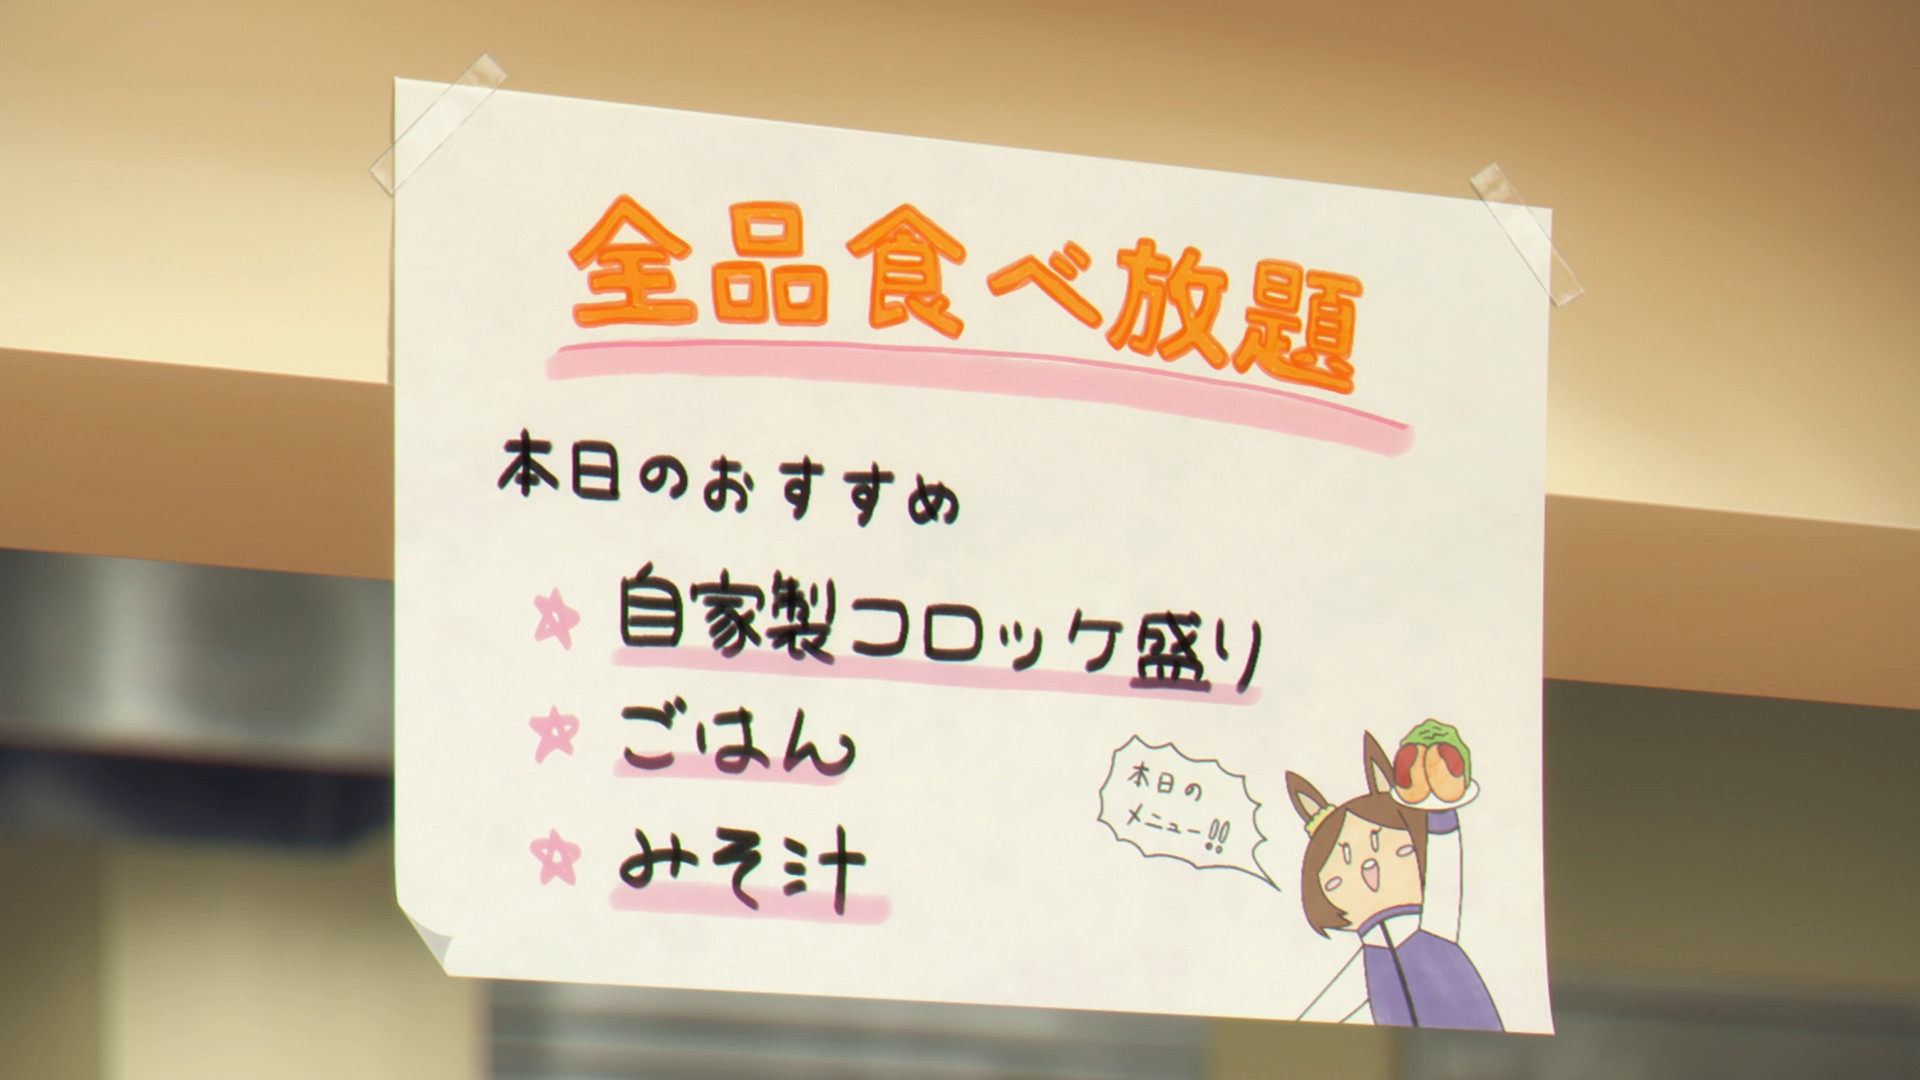 全品食べ放題
本日のおすすめ
☆ 自家製コロッケ盛り
☆ ごはん
☆ みそ汁
本日の
メニュー!!